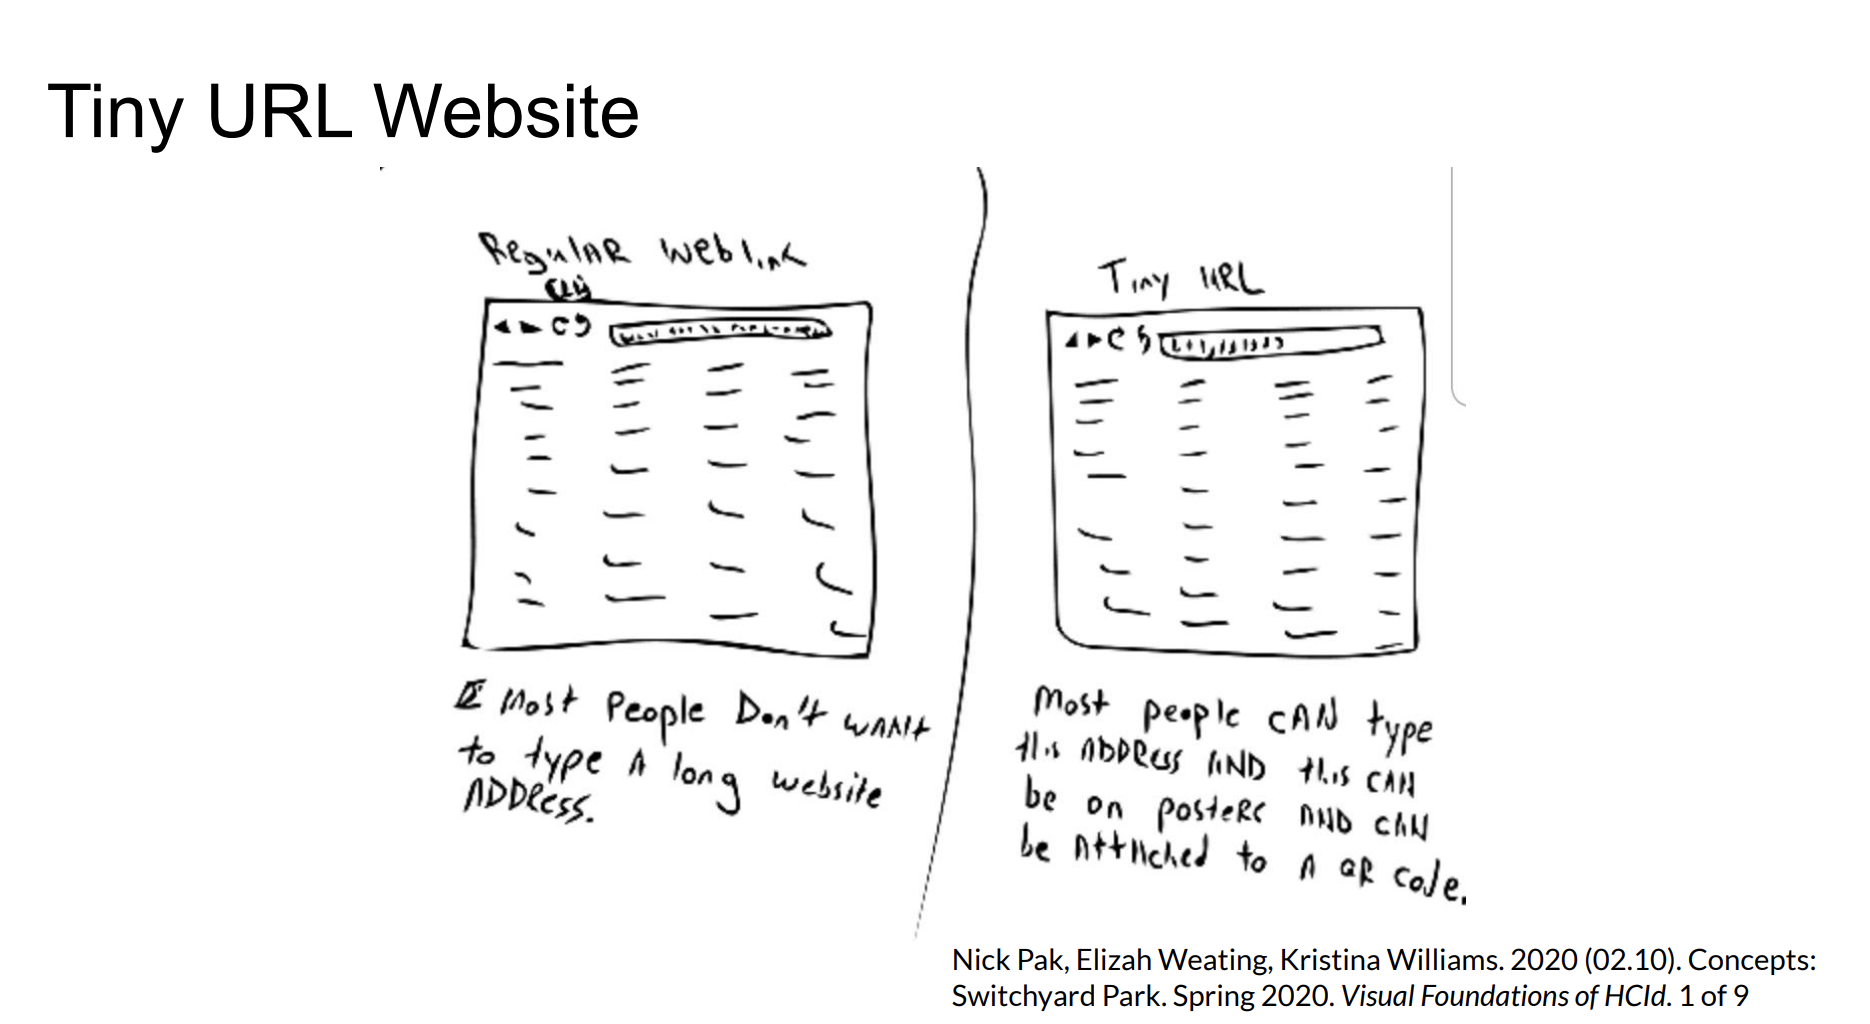 Tiny URL Website
Regular weblink
Most People Don't want
to type A long website
ADDRess.
Tiny URL
Most people CAN type
this ADDRess AND this CAN
be on posters AND CAN
be Attached to A QR code.
Nick Pak, Elizah Weating, Kristina Williams. 2020 (02.10). Concepts:
Switchyard Park. Spring 2020. Visual Foundations of HCId. 1 of 9